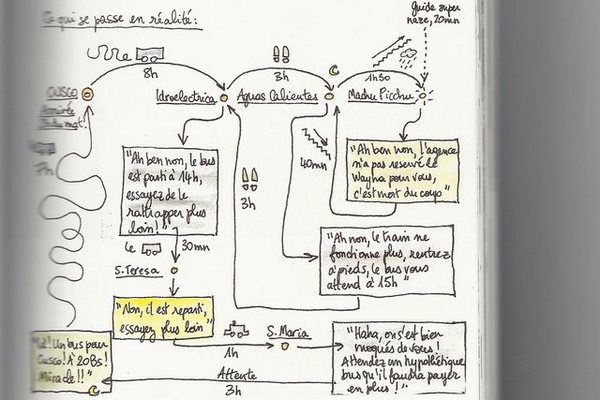 Ce qui se passe en réalité:
Guide super
naze, 20mn
8h
3h
1h30
Cusco
Idroelectrica
Aguas Calientes
Machu Picchu
"Ah ben non, le bus
est parti à 14h,
essayez de le
rattrapper plus
loin!"
3h
40mn
"Ah ben non, l'agence
n'a pas reservé le
Wayna pour vous,
c'est mort du coup"
"Ah non, le train ne
fonctionne plus, rentrez
à pieds, le bus vous
attend à 15h"
7h
le
30mn
S. Teresa
"Non, il est reparti,
essayez plus loin"
1h
S. Maria
"Haha, on s'est bien
moqués de vous!
Attendez un hypothétique
bus qu'il faudra payer
en plus!"
Attente
3h
Un bus pour
Cusco! À 20Bs!
Miracle!!"